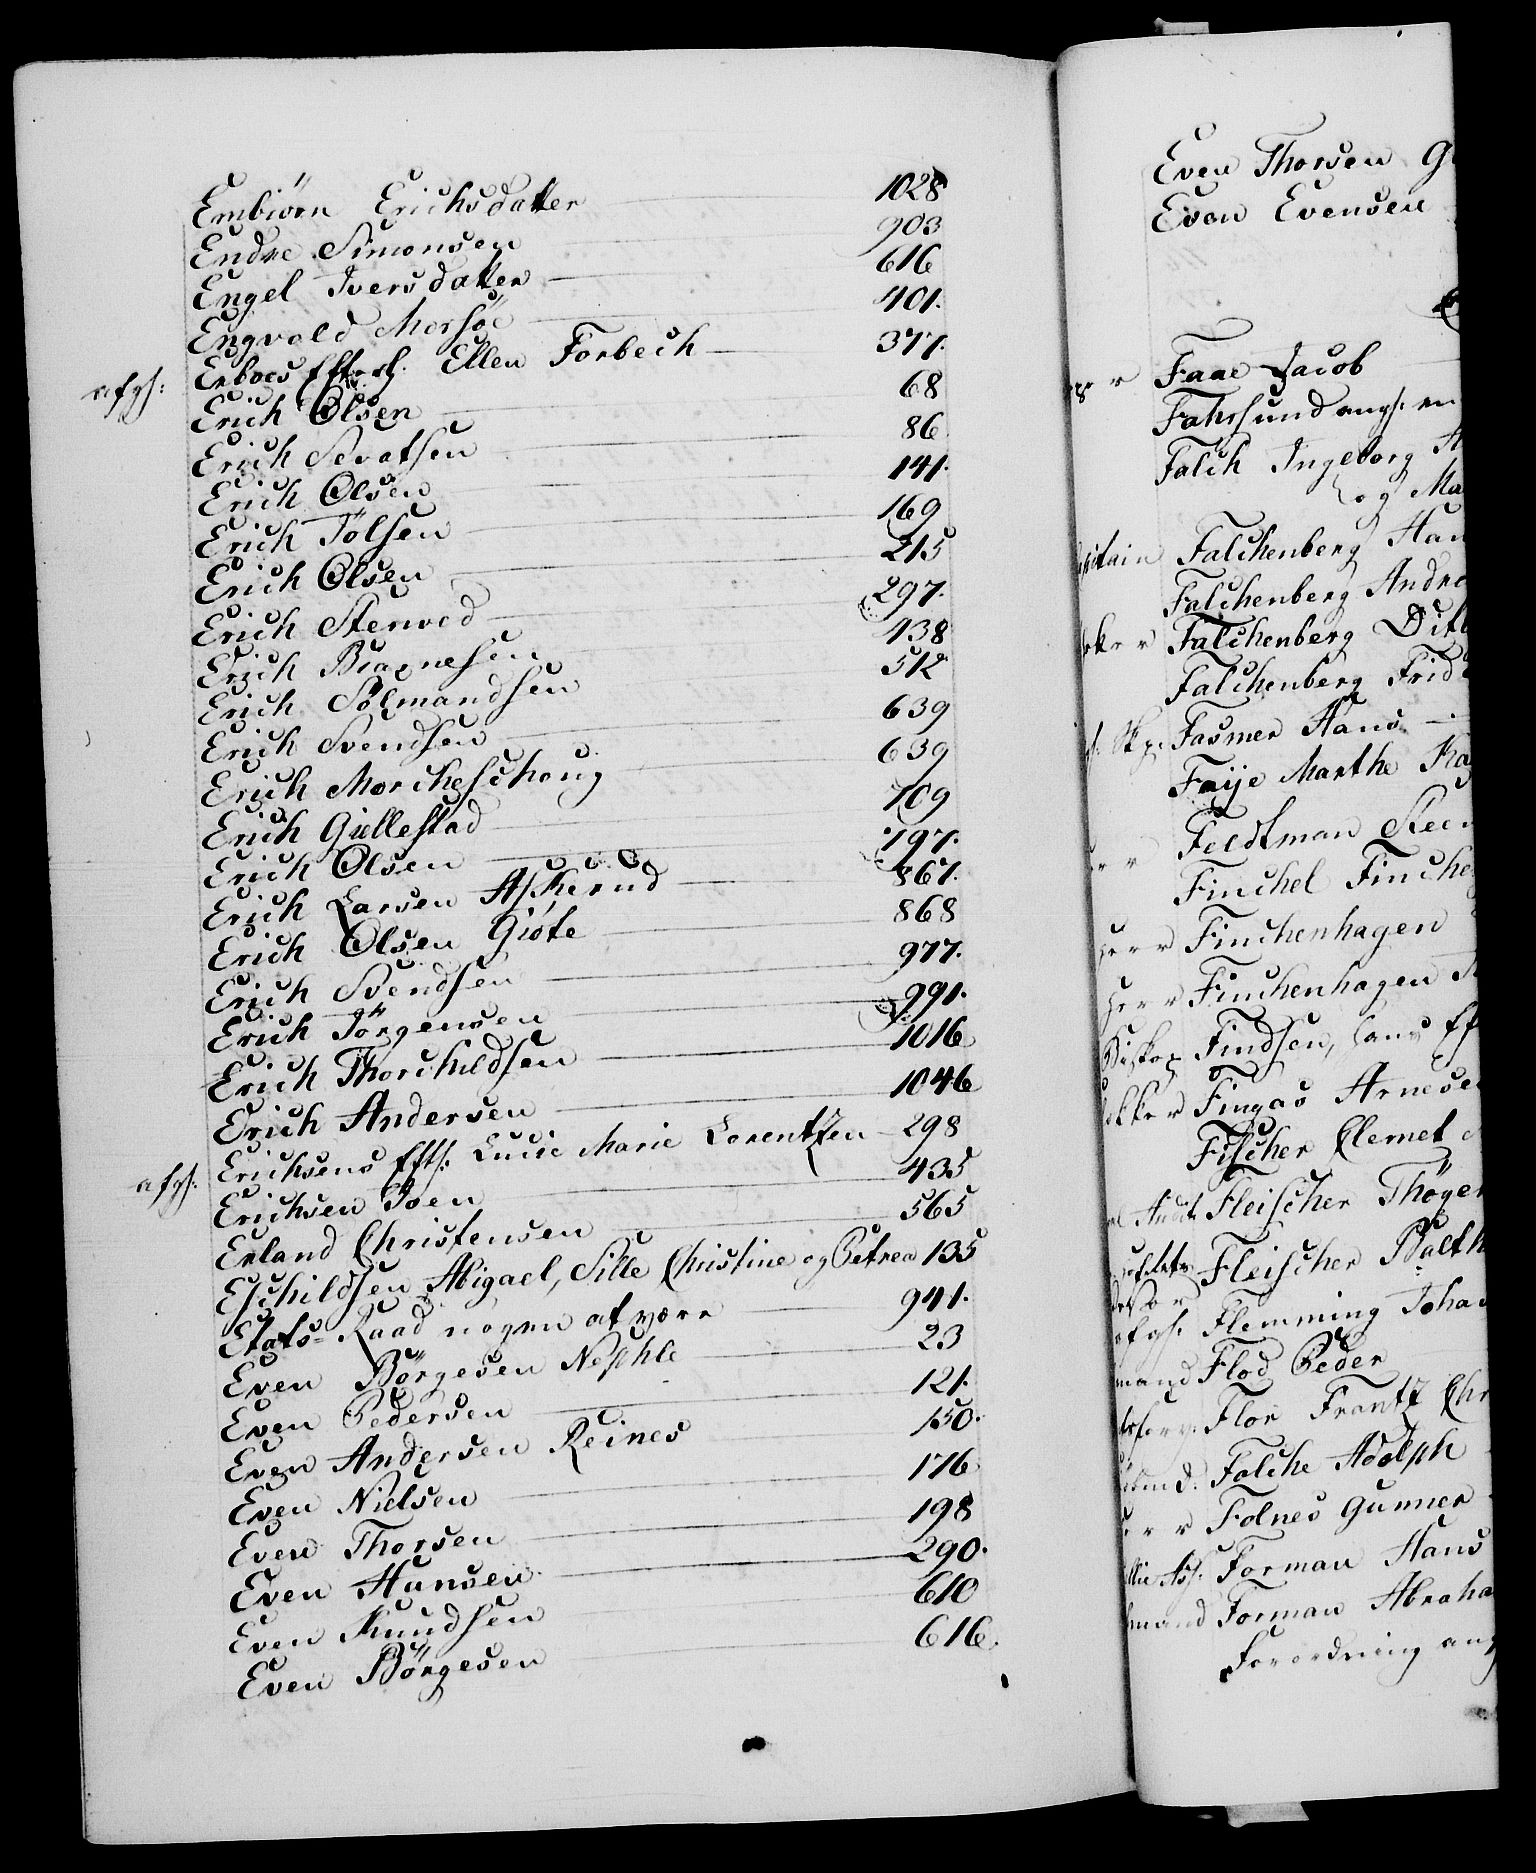 Embiörn Erichsdatter 1028
Endre Simonsen 903
Engel Iversdatter 616
Engvold Morsöe 401.
afgl: Erboes Efterl: Ellen Forbech 377.
Erich Olsen 68
Erich Sevatsen 86
Erich Olsen 141.
Erich Tölsen 169
Erich Olsen 215
Erich Stenved 297.
Erich Biarnesen 438
Erich Solmandsen 512
Erich Svendsen 639
Erich Morcheschoug 639
Erich Gullestad 709
Erich Olsen 797.
Erich Larsen Askerud 867.
Erich Olsen Giöte 868
Erich Svendsen 977.
Erich Jörgensen 991.
Erich Thorchildsen 1016
Erich Andersen 1046
afgl: Erichsens Eftl: Lucie Marie Lorentzen 298
Erichsen Iven 435
Erland Christensen 565
Eschildsen Abigael, Sille Christine og Petrea 135
Etats=Raad nogen at være 941.
Even Börgesen Nephle 23
Even Pedersen 121.
Even Andersen Reines 150.
Even Nielsen 176
Even Thorsen 198
Even Hansen 290.
Even Knudsen 610
Even Börgesen 616.
Even Thorsen
Even Evensen
Faae Jacob
Fahrsund angl: en
Falch Ingeborg
og Ma
Falchenberg Han
Falchenberg Andre
Falchenberg Ditl
Falchenberg Frid
Fasmer Hans
Faye Marthe
Feldtman Steen
Finchel Finche
Finchenhagen
Herr Finchenhagen
Biskop Findsen, Hans Ef
Fingas Arnesen
Fischer Clemet
Fleischer Thöger
Fleischer Balth
afgl: Flemming Johan
mand Flod Peder
Flor Frantz Chr
Folche Adolph
Folnes Gunner
Forman Hans
mand Forman Abraha
Forordning ang